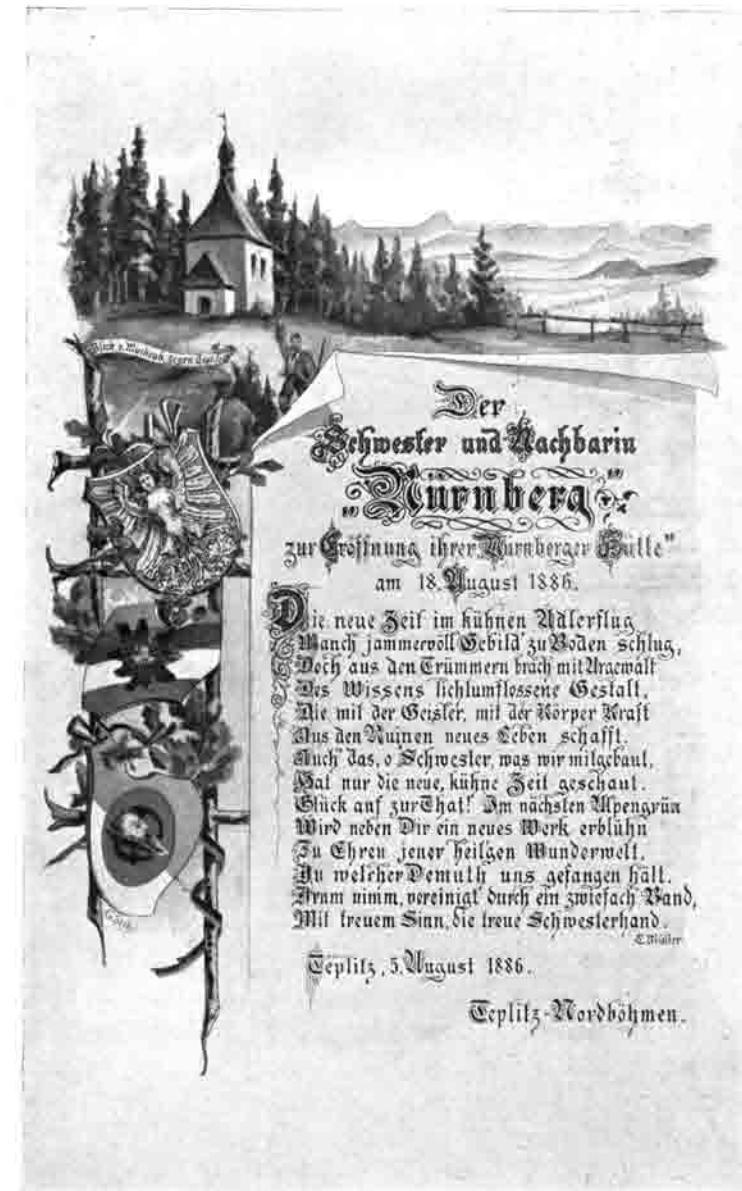 Der
Schwester und Nachbarin
„Nürnberg"
zur Eröffnung ihrer „Nürnberger Hütte"
am 18. August 1886.
Die neue Zeit im kühnen Adlerflug
Manch jammervoll Gebild' zu Boden schlug,
Doch aus den Trümmern brach mit Urgewalt
Des Wissens lichtumflossene Gestalt,
Die mit der Geister, mit der Körper Kraft
Aus den Ruinen neues Leben schafft.
Auch das, o Schwester, was wir mitgebaut,
Hat nur die neue, kühne Zeit geschaut.
Glück auf zur That! Im nächsten Alpengrün
Wird neben Dir ein neues Werk erblühn
Zu Ehren jener heilgen Wunderwelt,
In welcher Demuth uns gefangen hält.
Drum nimm, vereinigt durch ein zwiefach Band,
Mit treuem Sinn, die treue Schwesterhand.
C. Müller
Teplitz, 5. August 1886.
Teplitz-Nordböhmen.